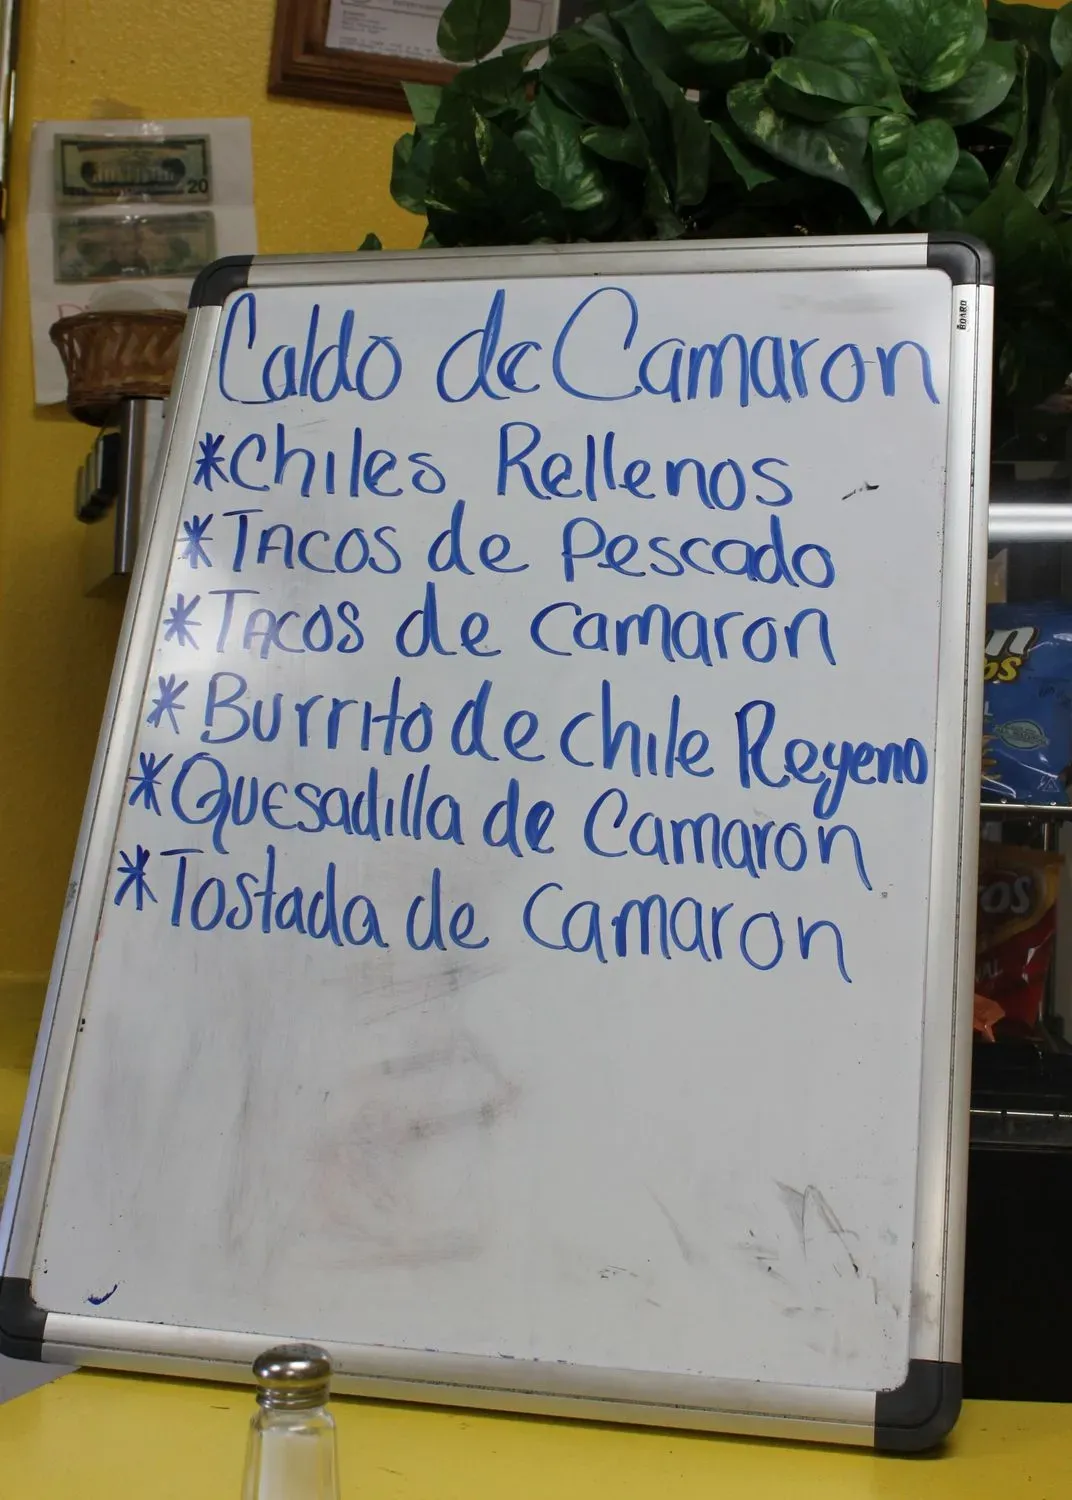 20
BOARD
Caldo de Camaron
*Chiles Rellenos
*Tacos de Pescado
*Tacos de camaron
*Burrito de chile Reyeno
*Quesadilla de Camaron
*Tostada de Camaron